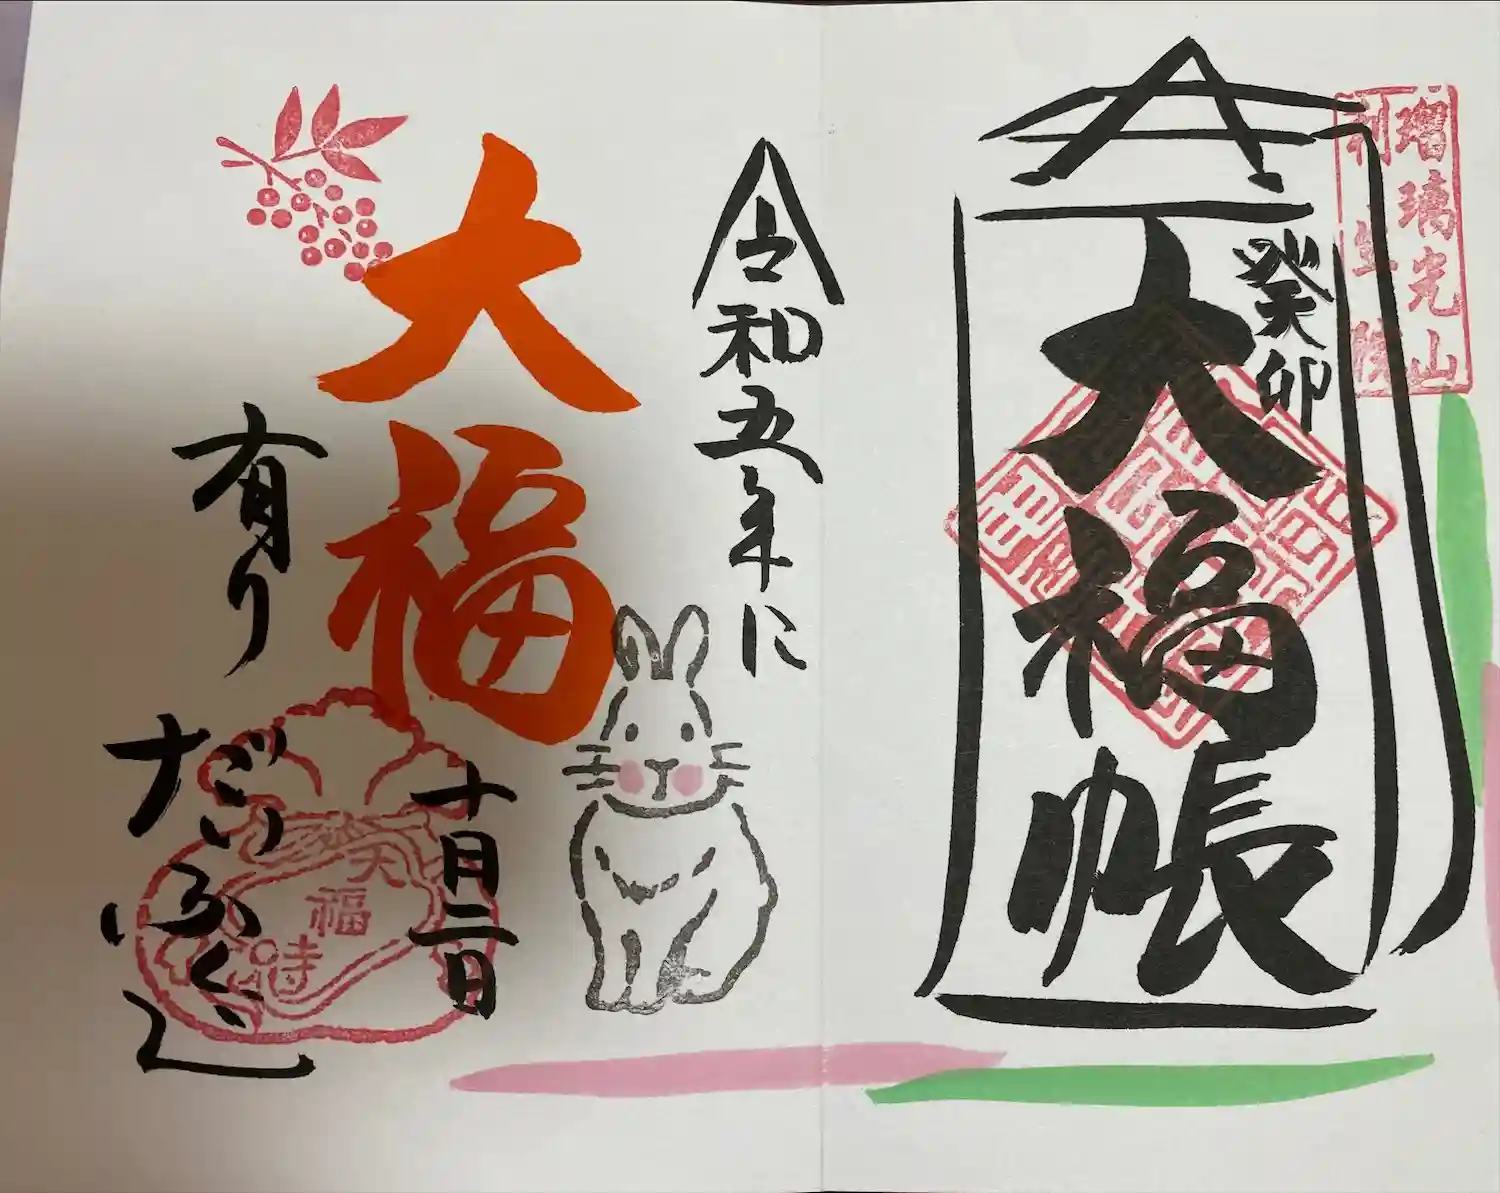 瑠璃光山
利生院
癸卯
大福帳
令和五年に
大福
有り
十月二日
だいふく
大福